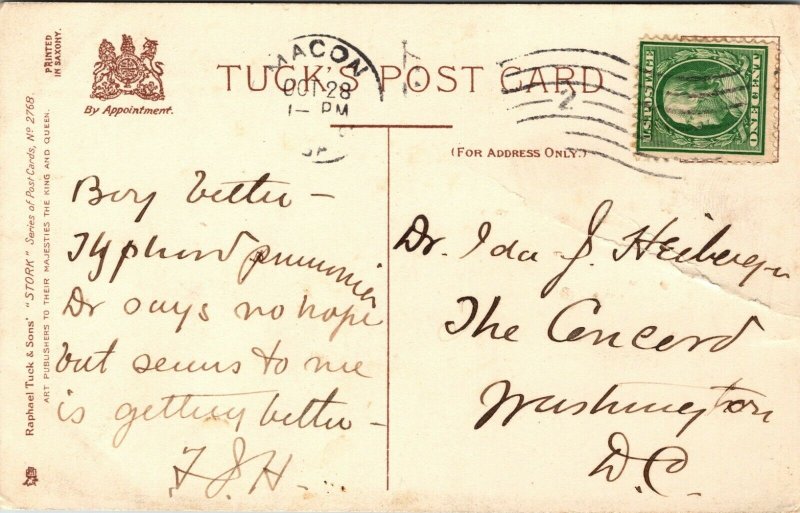 PRINTED
IN SAXONY.
By Appointment.
TUCK'S POST CARD
(FOR ADDRESS ONLY.)
MACON
OCT 28
1 - PM
GA
2
U.S. POSTAGE
ONE CENT
Raphael Tuck & Sons' "STORK" Series of Post Cards, No 2768.
ART PUBLISHERS TO THEIR MAJESTIES THE KING AND QUEEN.
Boy better -
Typhoid pneumonia
Dr says no hope
but seems to me
is getting better -
F. J. H.
Dr. Ida J. Heiberger
The Concord
Washington
D.C.